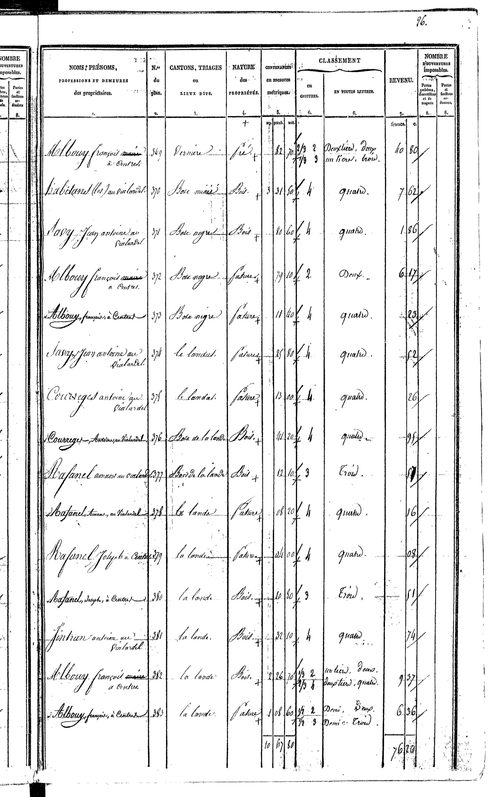 96.
NOMS, PRÉNOMS,
PROFESSIONS ET DEMEURES
des propriétaires.
N.os
du
plan.
CANTONS, TRIAGES
ou
LIEUX DITS.
NATURE
des
PROPRIÉTÉS.
CONTENANCES
EN MESURES
métriques.
CLASSEMENT
EN
CHIFFRES.
EN TOUTES LETTRES.
REVENU.
NOMBRE
D'OUVERTURES
imposables.
francs. c.
Albouy françois
à Centres
369 Verniere Pré 82 70 2/3 2 Deuxtiers, deux 40 80
1/3 3 un tiers, trois
habitans (les) du vialardel 370 Bois Bois 3 31 60 4 quatre. 7 62
Savy Jean antoine au
vialardel
371 Bois negre Bois 80 60 4 quatre. 1 86
Albouy françois
à Centres
372 Bois negre Pature 79 10 2 Deux. 6 17
Albouy, françois, à Centres 373 Bois negre Pature 18 20 4 quatre 23
Savy Jean antoine au
vialardel
374 le landat. Pature 25 80 4 quatre 52
Courreges antoine au
vialardel
375 le landat. Pature 13 00 4 quatre. 26
Courreges, Antoine, au Vialardel 376 Bois de la lande Bois 41 20 4 quatre 95
Rafanel au vialardel 377 Bois de la lande Bois 12 10 3 Trois.
Rafanel, au Vialardel 378 la lande Pature 08 20 4 quatre. 16
Rafanel Joseph à Centres 379 la lande Pature 04 00 4 quatre 08
Rafanel, Joseph, à Centres 380 la lande Bois 10 30 3 Trois. 51
Jintran antoine au
vialardel
381 la lande. Bois 32 10 4 quatre 74
Albouy françois
à Centres
382 la lande Bois 2 26 70 1/3 2 un tiers, deux 9 37
2/3 4 Deuxtiers, quatre
Albouy, françois, à Centres 383 la lande. Pature 1 08 60 1/2 2 Demi, Deux 6 36
1/2 3 Demi, Trois
10 67 80 76 26